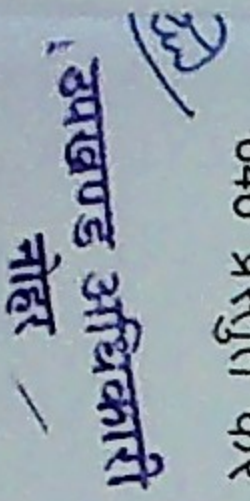 प्रस्तुत कर
उपखण्ड अधिकारी
नोहर